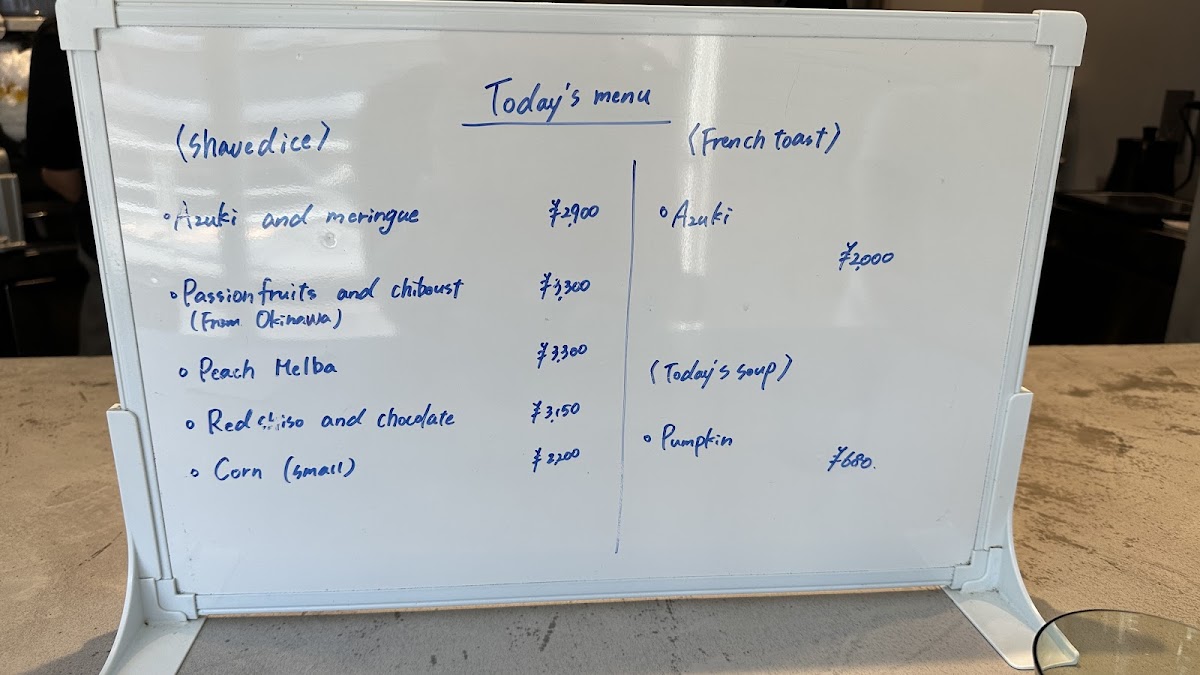 Today's menu
(Shaved ice)
• Azuki and meringue ¥2,900
• Passion fruits and chiboust ¥3,300
(From Okinawa)
• Peach Melba ¥3,300
• Red shiso and chocolate ¥3,150
• Corn (small) ¥2,200
(French toast)
• Azuki
¥2,000
(Today's soup)
• Pumpkin
¥680.